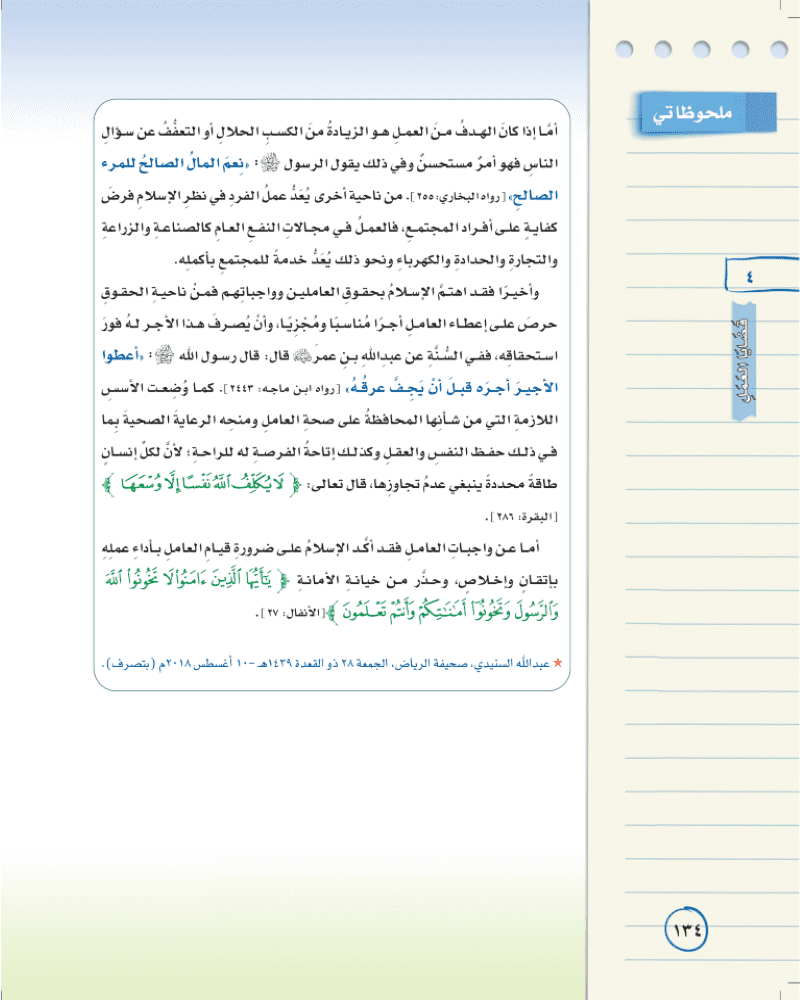 ملحوظاتي
٤
قَضَايَا العَمَلِ
أمَّا إذا كانَ الهدفُ منَ العملِ هو الزيادةُ منَ الكسبِ الحلالِ أو التعفُّفُ عن سؤالِ
الناسِ فهو أمرٌ مستحسنٌ وفي ذلك يقول الرسول ﷺ: «نِعمَ المالُ الصالحُ للمرء
الصالحِ» [رواه البخاري: ٢٥٥]. من ناحية أخرى يُعَدُّ عملُ الفردِ في نظرِ الإسلامِ فرضَ
كفايةٍ على أفراد المجتمعِ، فالعملُ في مجالاتِ النفعِ العامِ كالصناعةِ والزراعةِ
والتجارةِ والحدادةِ والكهرباءِ ونحو ذلك يُعَدُّ خدمةً للمجتمعِ بأكملِه.
وأخيرًا فقد اهتمَّ الإسلامُ بحقوقِ العاملين وواجباتِهم فمنْ ناحيةِ الحقوقِ
حرصَ على إعطاء العاملِ أجرًا مُناسبًا ومُجْزيًا، وأنْ يُصرفَ هذا الأجر لهُ فورَ
استحقاقِه، ففي السُّنَّةِ عن عبدِاللهِ بنِ عمرَ ﵁ قال: قال رسول الله ﷺ: «أعطوا
الأجيرَ أجرَه قبلَ أنْ يَجِفَّ عرقُهُ» [رواه ابن ماجه: ٢٤٤٣]. كما وُضِعت الأسسُ
اللازمةِ التي من شأنِها المحافظةُ على صحةِ العاملِ ومنحِه الرعايةَ الصحيةَ بما
في ذلك حفظ النفسِ والعقلِ وكذلك إتاحةُ الفرصةِ له للراحةِ؛ لأنَّ لكلِّ إنسانٍ
طاقةً محددةً ينبغي عدمُ تجاوزِها، قال تعالى: ﴿ لَا يُكَلِّفُ ٱللَّهُ نَفْسًا إِلَّا وُسْعَهَا ﴾
[البقرة: ٢٨٦].
أما عن واجباتِ العاملِ فقد أكَّد الإسلامُ على ضرورةِ قيامِ العاملِ بأداءِ عملِهِ
بإتقانٍ وإخلاصٍ، وحذَّر من خيانةِ الأمانةِ ﴿ يَٰٓأَيُّهَا ٱلَّذِينَ ءَامَنُوا۟ لَا تَخُونُوا۟ ٱللَّهَ
وَٱلرَّسُولَ وَتَخُونُوٓا۟ أَمَٰنَٰتِكُمْ وَأَنتُمْ تَعْلَمُونَ ﴾ [الأنفال: ٢٧].
★ عبدالله السنيدي، صحيفة الرياض، الجمعة ٢٨ ذو القعدة ١٤٣٩هـ -١٠ أغسطس ٢٠١٨م (بتصرف).
١٣٤